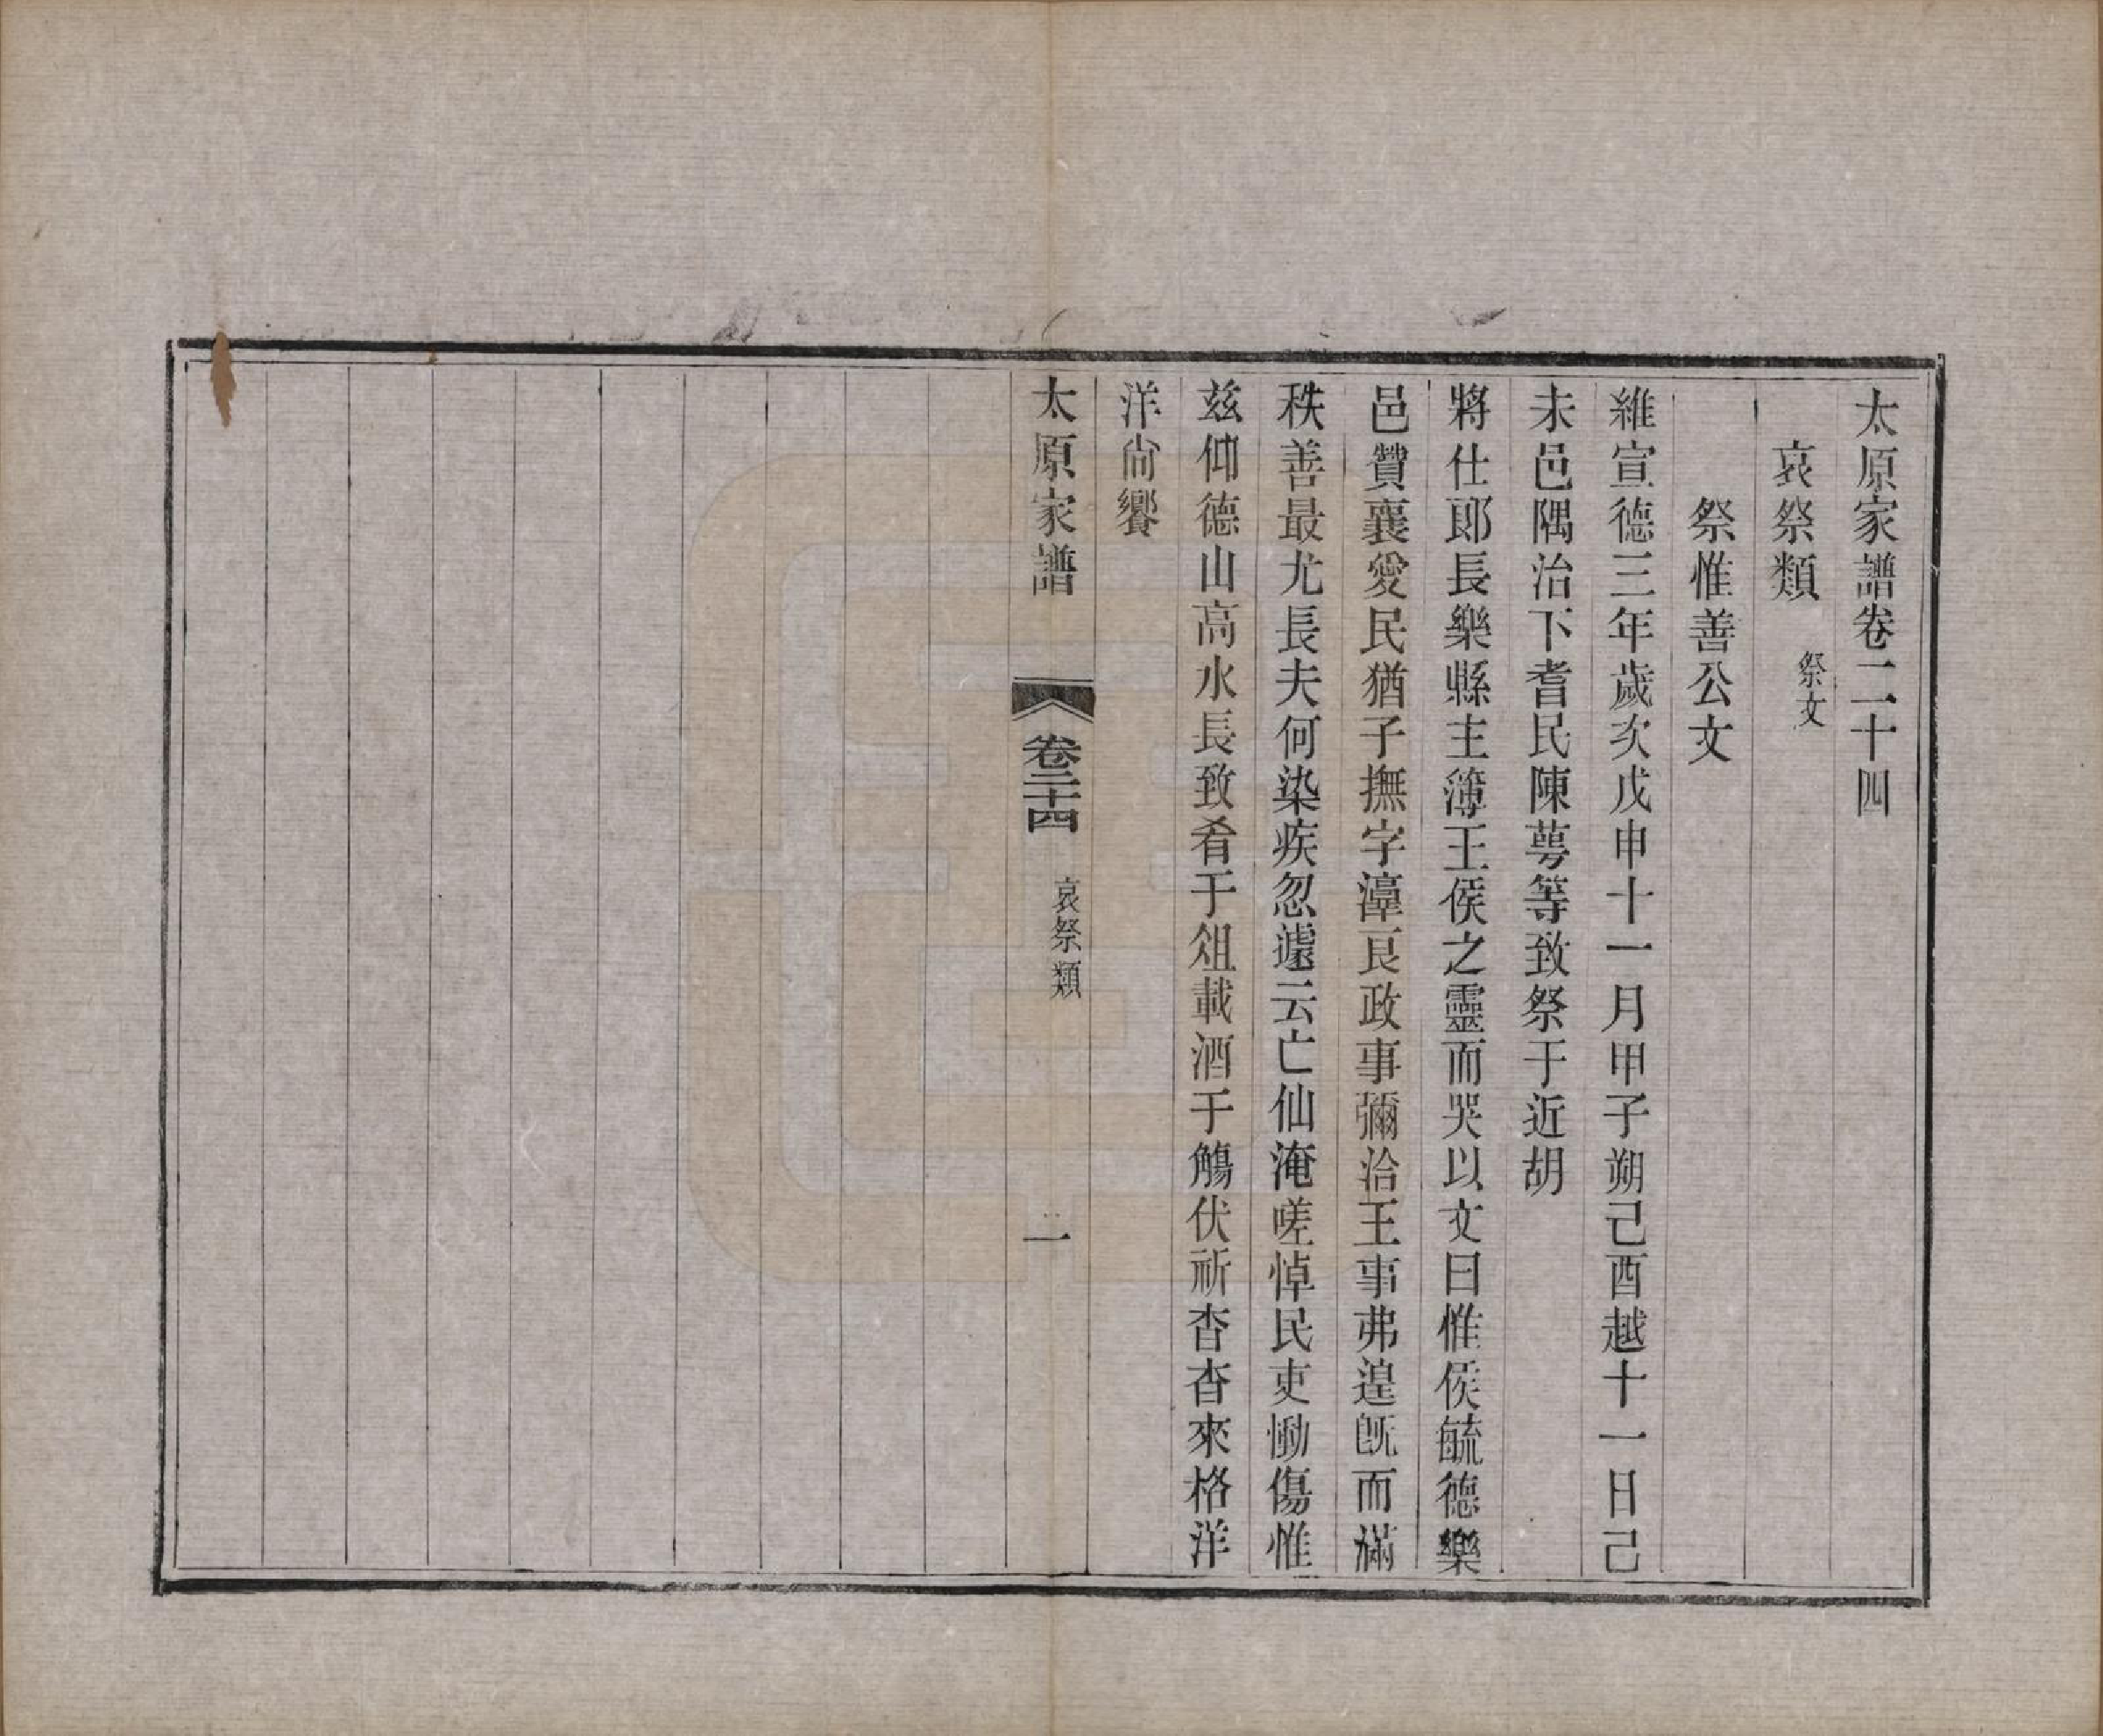 太原家譜卷二十四
哀祭類 祭文
祭惟善公文
維宣德三年歲次戊申十一月甲子朔己酉越十一日己
未邑隅治下耆民陳蕚等致祭于近胡
將仕郎長樂縣主簿王侯之靈而哭以文曰惟侯毓德樂
邑贊襄愛民猶子撫字漳良政事彌洽王事弗遑旣而滿
秩善最尤長夫何染疾忽遽云亡仙淹嗟悼民吏慟傷惟
茲仰德山高水長致肴于俎載酒于觴伏祈杳杳來格洋
洋尙饗
太原家譜 卷二十四 哀祭類 一